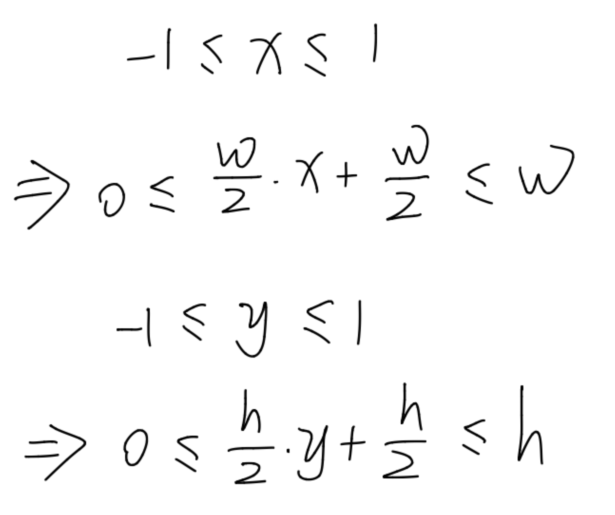 -1 ≤ x ≤ 1
⇒ 0 ≤ w/2 · x + w/2 ≤ w
-1 ≤ y ≤ 1
⇒ 0 ≤ h/2 · y + h/2 ≤ h